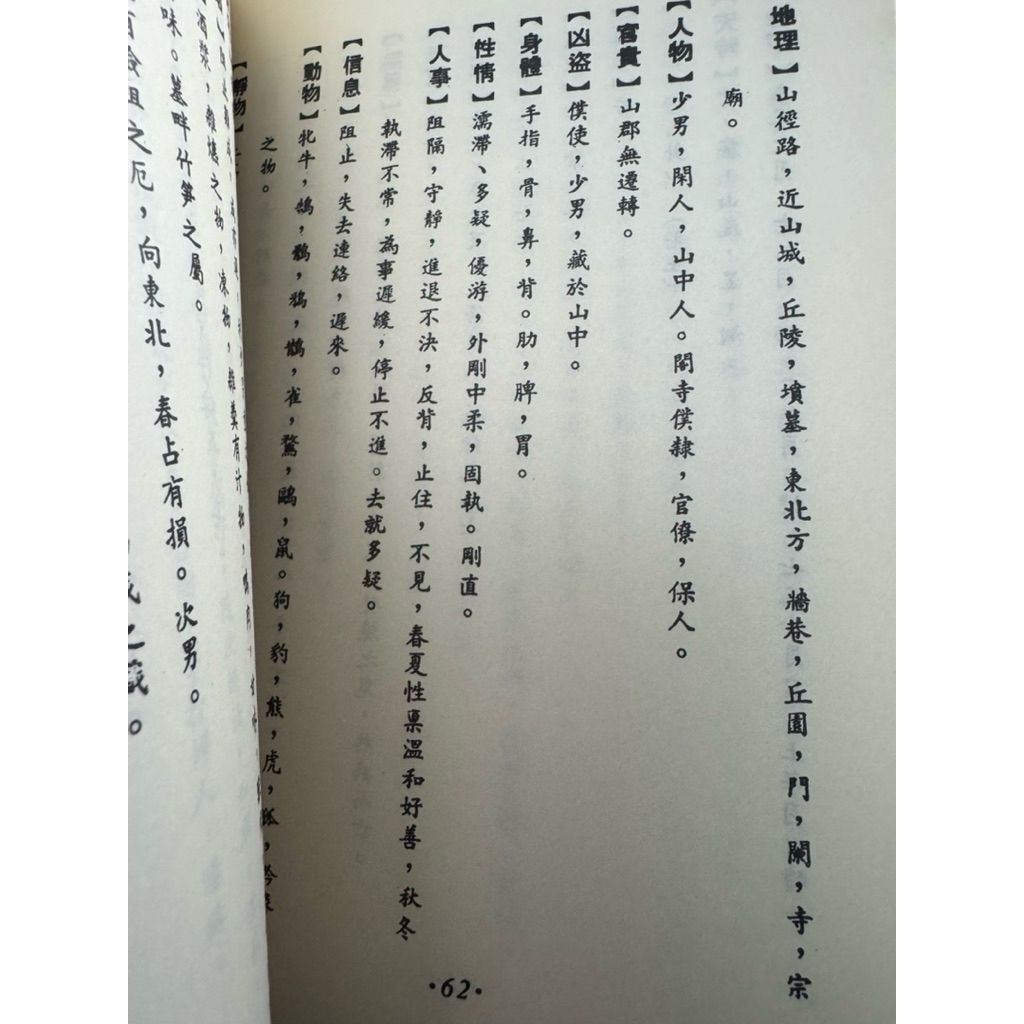 地理】山徑路，近山城，丘陵，墳墓，東北方，牆巷，丘園，門，闌，寺，宗
廟。
【人物】少男，閑人，山中人。閣寺僕隸，官僚，保人。
【官貴】山郡無遷轉。
【凶盜】僕使，少男，藏於山中。
【身體】手指，骨，鼻，背。肋，脾，胃。
【性情】濡滯、多疑，優游，外剛中柔，固執。剛直。
【人事】阻隔，守靜，進退不決，反背，止住，不見，春夏性稟溫和好善，秋冬
執滯不常，為事遲緩，停止不進。去就多疑。
【信息】阻止，失去連絡，遲來。
【動物】牝牛，鵲，雀，鶩，鷗，鼠。狗，豹，熊，虎，狐，
之物。
【靜物】
·62·
酒漿，之物，凍物，有汁物，
味。墓畔竹筍之屬。
之厄，向東北，春占有損。次男。
之